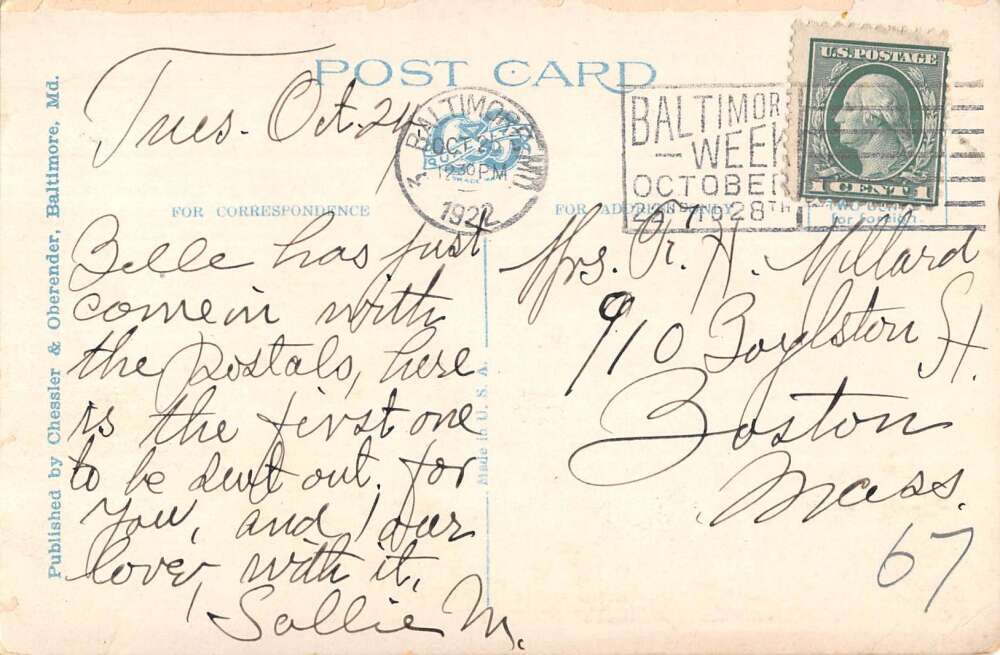 POST CARD
Published by Chessler & Oberender, Baltimore, Md.
Tues. Oct. 24
BALTIMORE, MD.
OCT 25
12 30 PM
1922
BALTIMORE
— WEEK
OCTOBER
23RD TO 28TH
U.S. POSTAGE
1 CENT 1
for foreign.
FOR CORRESPONDENCE
FOR ADDRESS ONLY
Belle has just
come in with
the postals, here
is the first one
to be sent out. for
you, and our
love, with it.
Sallie M.
Made in U. S. A.
Mrs. R. H. Millard
910 Boylston St.
Boston
Mass.
67